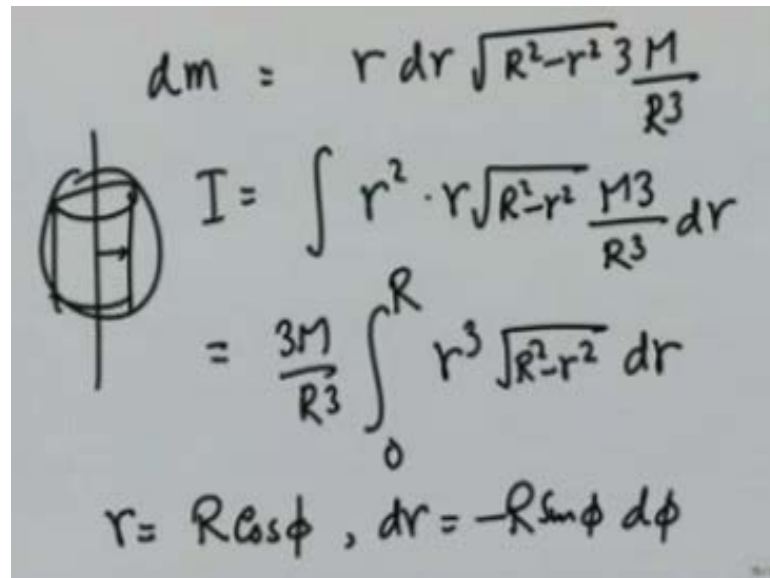 dm = r dr √(R²-r²) 3 M/R³
I = ∫ r² · r√(R²-r²) M3/R³ dr
= 3M/R³ ∫₀ᴿ r³ √(R²-r²) dr
r = R cos ϕ , dr = -R sin ϕ dϕ